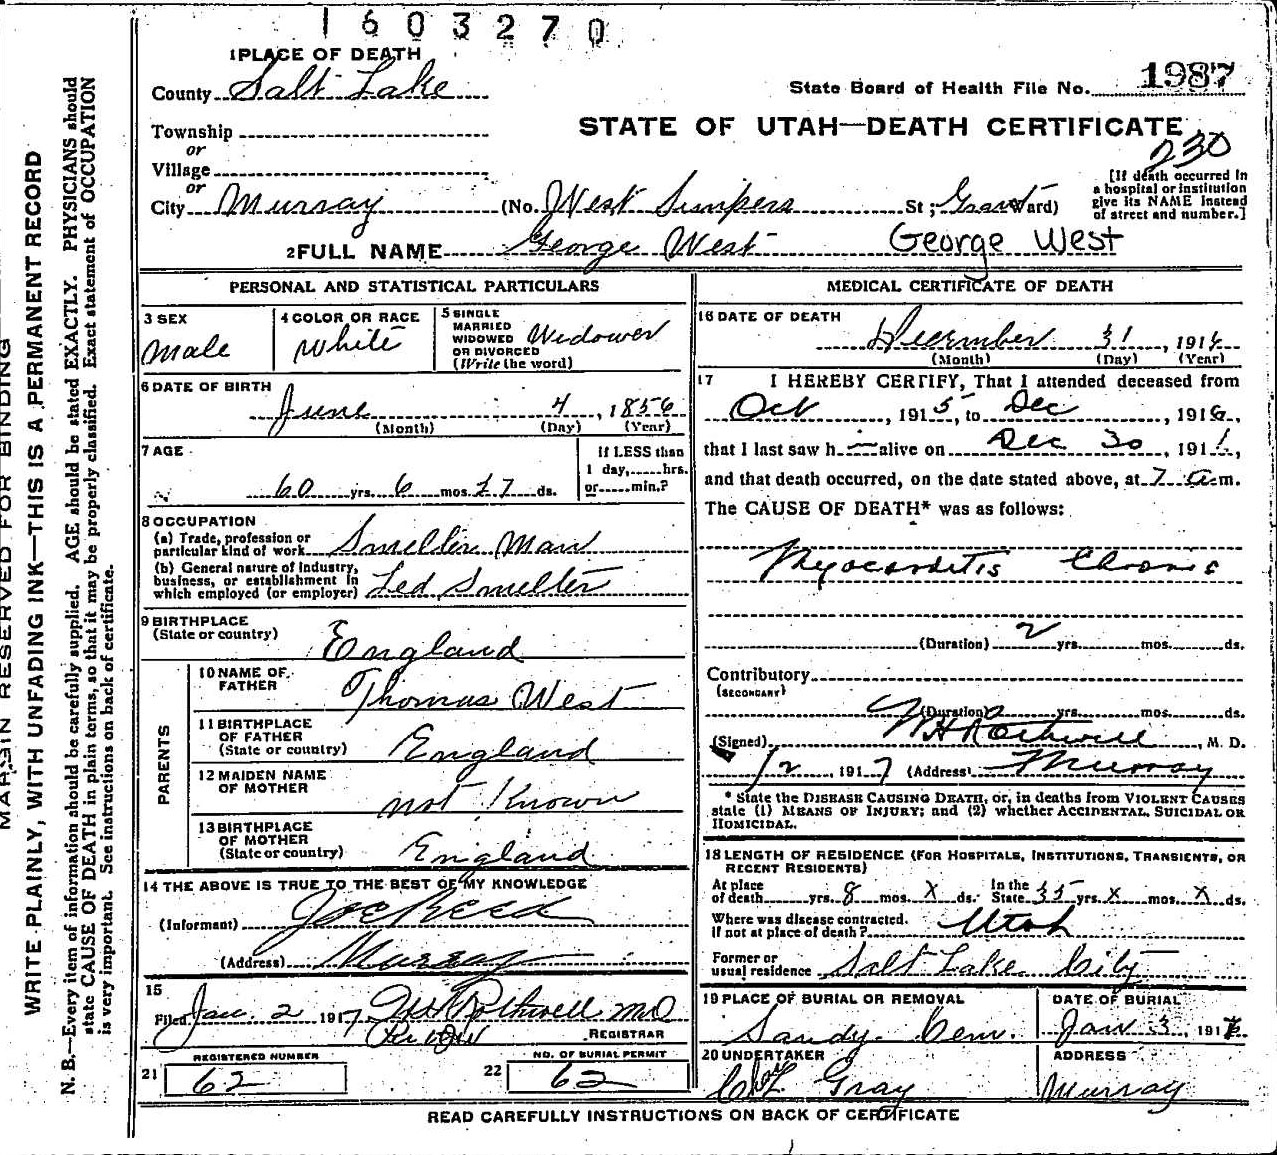 1603270
1 PLACE OF DEATH
County Salt Lake
State Board of Health File No. 1987
Township
or
STATE OF UTAH—DEATH CERTIFICATE
230
Village
or
City Murray (No. West St; Grant Ward)
[If death occurred in a hospital or institution give its NAME instead of street and number.]
2 FULL NAME George West George West
PERSONAL AND STATISTICAL PARTICULARS
3 SEX
Male
4 COLOR OR RACE
White
5 SINGLE
MARRIED
WIDOWED
OR DIVORCED
(Write the word)
Widower
6 DATE OF BIRTH
June 4, 1856
(Month) (Day) (Year)
7 AGE
60 yrs. 6 mos. 27 ds.
If LESS than
1 day,......hrs.
or......min.?
8 OCCUPATION
(a) Trade, profession or
particular kind of work Smelter Man
(b) General nature of industry,
business, or establishment in
which employed (or employer) Led Smelter
9 BIRTHPLACE
(State or country) England
PARENTS
10 NAME OF
FATHER Thomas West
11 BIRTHPLACE
OF FATHER
(State or country) England
12 MAIDEN NAME
OF MOTHER not Known
13 BIRTHPLACE
OF MOTHER
(State or country) England
14 THE ABOVE IS TRUE TO THE BEST OF MY KNOWLEDGE
(Informant) Joe Reed
(Address) Murray
15
Filed Jan. 2 1917 Rothwell MD
REGISTRAR
REGISTERED NUMBER
21 62
NO. OF BURIAL PERMIT
22 62
MEDICAL CERTIFICATE OF DEATH
16 DATE OF DEATH
December 31, 1916
(Month) (Day) (Year)
17 I HEREBY CERTIFY, That I attended deceased from
Oct, 1915, to Dec, 1916,
that I last saw h alive on Dec 30, 1916,
and that death occurred, on the date stated above, at 7 a.m.
The CAUSE OF DEATH* was as follows:
Myocarditis Chronic
(Duration) 2 yrs. mos. ds.
Contributory
(SECONDARY)
(Duration) yrs. mos. ds.
(Signed) W H Rothwell, M. D.
1/2, 1917 (Address) Murray
* State the DISEASE CAUSING DEATH, or, in deaths from VIOLENT CAUSES
state (1) MEANS OF INJURY; and (2) whether ACCIDENTAL, SUICIDAL OR
HOMICIDAL.
18 LENGTH OF RESIDENCE (FOR HOSPITALS, INSTITUTIONS, TRANSIENTS, OR
RECENT RESIDENTS)
At place
of death yrs. 8 mos. x ds. In the State 35 yrs. x mos. x ds.
Where was disease contracted.
if not at place of death? Utah
Former or
usual residence Salt Lake City
19 PLACE OF BURIAL OR REMOVAL
Sandy Cem.
DATE OF BURIAL
Jan 3, 1917
20 UNDERTAKER
Gray
ADDRESS
Murray
READ CAREFULLY INSTRUCTIONS ON BACK OF CERTIFICATE
MARGIN RESERVED FOR BINDING
WRITE PLAINLY, WITH UNFADING INK—THIS IS A PERMANENT RECORD
N. B.—Every item of information should be carefully supplied. AGE should be stated EXACTLY. PHYSICIANS should
state CAUSE OF DEATH in plain terms, so that it may be properly classified. Exact statement of OCCUPATION
is very important. See instructions on back of certificate.